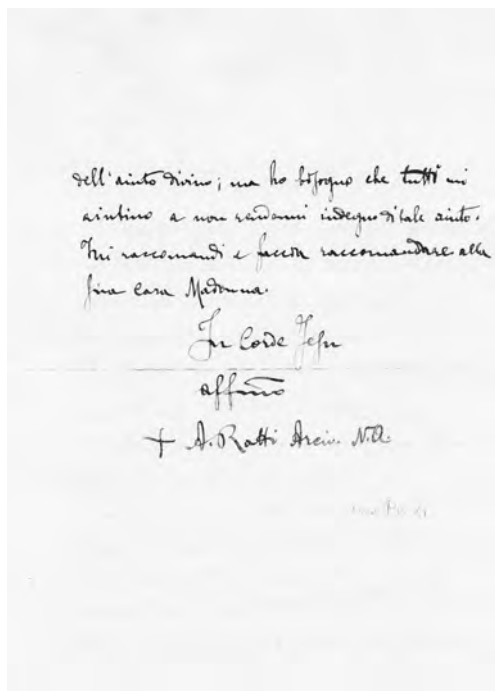 dell'aiuto divino; ma ho bisogno che tutti mi
aiutino a non rendermi indegno di tale aiuto.
Mi raccomandi e faccia raccomandare alla
sua cara Madonna.
In Corde Jesu
affmo
+ A. Ratti Arciv. N.A.